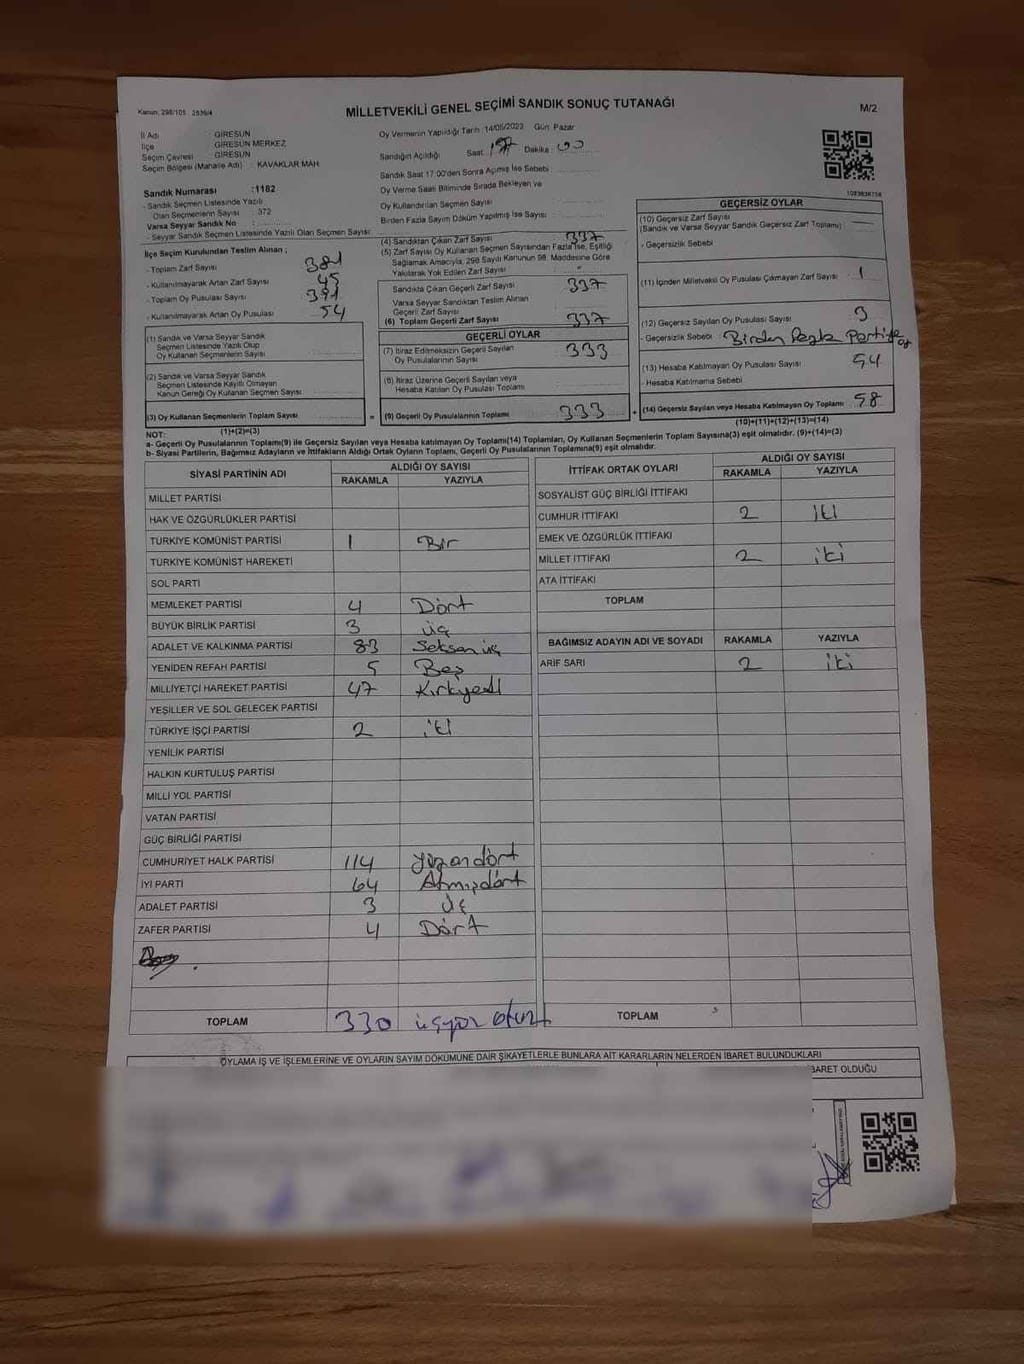 Kanun; 298/105
MİLLETVEKİLİ GENEL SEÇİMİ SANDIK SONUÇ TUTANAĞI
M/2
İl Adı : GİRESUN
İlçe : GİRESUN MERKEZ
Seçim Çevresi : GİRESUN
Seçim Bölgesi (Mahalle Adı) : KAVAKLAR MAH.
Sandık Numarası :1182
- Sandık Seçmen Listesinde Yazılı
Olan Seçmenlerin Sayısı : 372
Varsa Seyyar Sandık No :
- Seyyar Sandık Seçmen Listesinde Yazılı Olan Seçmen Sayısı :
Oy Vermenin Yapıldığı Tarih :14/05/2023 Gün: Pazar
Sandığın Açıldığı Saat: Dakika: 00
Sandık Saat 17:00'den Sonra Açılmış İse Sebebi :
Oy Verme Saati Bitiminde Sırada Bekleyen ve
Oy Kullandırılan Seçmen Sayısı :
Birden Fazla Sayım Döküm Yapılmış İse Sayısı :
İlçe Seçim Kurulundan Teslim Alınan ;
- Toplam Zarf Sayısı : 381
- Kullanılmayarak Artan Zarf Sayısı : 45
- Toplam Oy Pusulası Sayısı : 391
- Kullanılmayarak Artan Oy Pusulası : 54
(1) Sandık ve Varsa Seyyar Sandık
Seçmen Listesinde Yazılı Olup
Oy Kullanan Seçmenlerin Sayısı
(2) Sandık ve Varsa Seyyar Sandık
Seçmen Listesinde Kayıtlı Olmayan
Kanun Gereği Oy Kullanan Seçmen Sayısı
(3) Oy Kullanan Seçmenlerin Toplam Sayısı
(1)+(2)=(3)
(4) Sandıktan Çıkan Zarf Sayısı : 337
(5) Zarf Sayısı Oy Kullanan Seçmen Sayısından Fazla İse, Eşitliği
Sağlamak Amacıyla, 298 Sayılı Kanunun 98. Maddesine Göre
Yakılarak Yok Edilen Zarf Sayısı :
Sandıkta Çıkan Geçerli Zarf Sayısı : 337
Varsa Seyyar Sandıktan Teslim Alınan
Geçerli Zarf Sayısı :
(6) Toplam Geçerli Zarf Sayısı : 337
GEÇERLİ OYLAR
(7) İtiraz Edilmeksizin Geçerli Sayılan
Oy Pusulalarının Sayısı : 333
(8) İtiraz Üzerine Geçerli Sayılan veya
Hesaba Katılan Oy Pusulası Toplamı
= (9) Geçerli Oy Pusulalarının Toplamı : 333
GEÇERSİZ OYLAR
(10) Geçersiz Zarf Sayısı
(Sandık ve Varsa Seyyar Sandık Geçersiz Zarf Toplamı) :
- Geçersizlik Sebebi :
(11) İçinden Milletvekili Oy Pusulası Çıkmayan Zarf Sayısı : 1
(12) Geçersiz Sayılan Oy Pusulası Sayısı : 3
- Geçersizlik Sebebi : Birden fazla Partiye oy
(13) Hesaba Katılmayan Oy Pusulası Sayısı : 54
- Hesaba Katılmama Sebebi :
+ (14) Geçersiz Sayılan veya Hesaba Katılmayan Oy Toplamı : 58
(10)+(11)+(12)+(13)=(14)
NOT:
a- Geçerli Oy Pusulalarının Toplamı(9) ile Geçersiz Sayılan veya Hesaba katılmayan Oy Toplamı(14) Toplamları, Oy Kullanan Seçmenlerin Toplam Sayısına(3) eşit olmalıdır. (9)+(14)=(3)
b- Siyasi Partilerin, Bağımsız Adayların ve İttifakların Aldığı Ortak Oyların Toplamı, Geçerli Oy Pusulalarının Toplamına(9) eşit olmalıdır.
SİYASİ PARTİNİN ADI ALDIĞI OY SAYISI
RAKAMLA YAZIYLA
MİLLET PARTİSİ
HAK VE ÖZGÜRLÜKLER PARTİSİ
TÜRKİYE KOMÜNİST PARTİSİ 1 Bir
TÜRKİYE KOMÜNİST HAREKETİ
SOL PARTİ
MEMLEKET PARTİSİ 4 Dört
BÜYÜK BİRLİK PARTİSİ 3 üç
ADALET VE KALKINMA PARTİSİ 83 Seksen üç
YENİDEN REFAH PARTİSİ 5 Beş
MİLLİYETÇİ HAREKET PARTİSİ 47 Kırkyedi
YEŞİLLER VE SOL GELECEK PARTİSİ
TÜRKİYE İŞÇİ PARTİSİ 2 iki
YENİLİK PARTİSİ
HALKIN KURTULUŞ PARTİSİ
MİLLİ YOL PARTİSİ
VATAN PARTİSİ
GÜÇ BİRLİĞİ PARTİSİ
CUMHURİYET HALK PARTİSİ 114 Yüzondört
İYİ PARTİ 64 Atmışdört
ADALET PARTİSİ 3 Üç
ZAFER PARTİSİ 4 Dört
TOPLAM 330 üçyüz otuz
İTTİFAK ORTAK OYLARI ALDIĞI OY SAYISI
RAKAMLA YAZIYLA
SOSYALİST GÜÇ BİRLİĞİ İTTİFAKI
CUMHUR İTTİFAKI 2 iki
EMEK VE ÖZGÜRLÜK İTTİFAKI
MİLLET İTTİFAKI 2 iki
ATA İTTİFAKI
TOPLAM
BAĞIMSIZ ADAYIN ADI VE SOYADI RAKAMLA YAZIYLA
ARİF SARI 2 iki
TOPLAM
OYLAMA İŞ VE İŞLEMLERİNE VE OYLARIN SAYIM DÖKÜMÜNE DAİR ŞİKAYETLERLE BUNLARA AİT KARARLARIN NELERDEN İBARET BULUNDUKLARI
BARET OLDUĞU